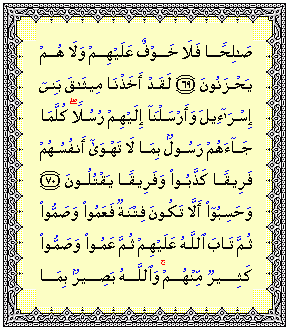 صَـٰلِحًا فَلَا خَوْفٌ عَلَيْهِمْ وَلَا هُمْ
يَحْزَنُونَ ﴿٦٩﴾ لَقَدْ أَخَذْنَا مِيثَـٰقَ بَنِىٓ
إِسْرَٰٓءِيلَ وَأَرْسَلْنَآ إِلَيْهِمْ رُسُلًا ۖ كُلَّمَا
جَآءَهُمْ رَسُولٌۢ بِمَا لَا تَهْوَىٰٓ أَنفُسُهُمْ
فَرِيقًا كَذَّبُوا۟ وَفَرِيقًا يَقْتُلُونَ ﴿٧٠﴾
وَحَسِبُوٓا۟ أَلَّا تَكُونَ فِتْنَةٌ فَعَمُوا۟ وَصَمُّوا۟
ثُمَّ تَابَ ٱللَّهُ عَلَيْهِمْ ثُمَّ عَمُوا۟ وَصَمُّوا۟
كَثِيرٌ مِّنْهُمْ ۚ وَٱللَّهُ بَصِيرٌۢ بِمَا